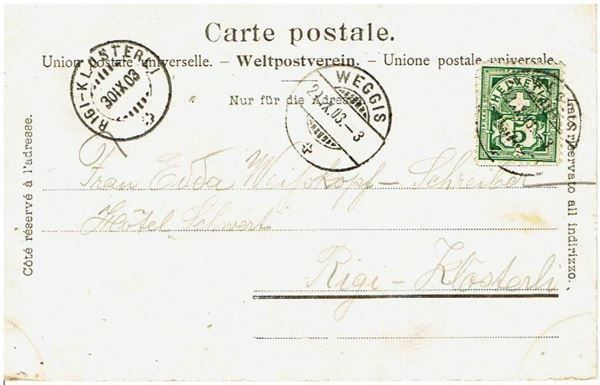 Carte postale.
Union postale universelle. – Weltpostverein. – Unione postale universale.
Nur für die Adresse.
RIGI-KLÖSTERLI
30 IX 03
WEGGIS
IX.03.– 3
HELVETIA
5
Côté réservé à l'adresse.
Lato riservato all indirizzo.
Frau Edda Weisskopf – Schreiber
Hôtel Schwert
Rigi – Klösterli